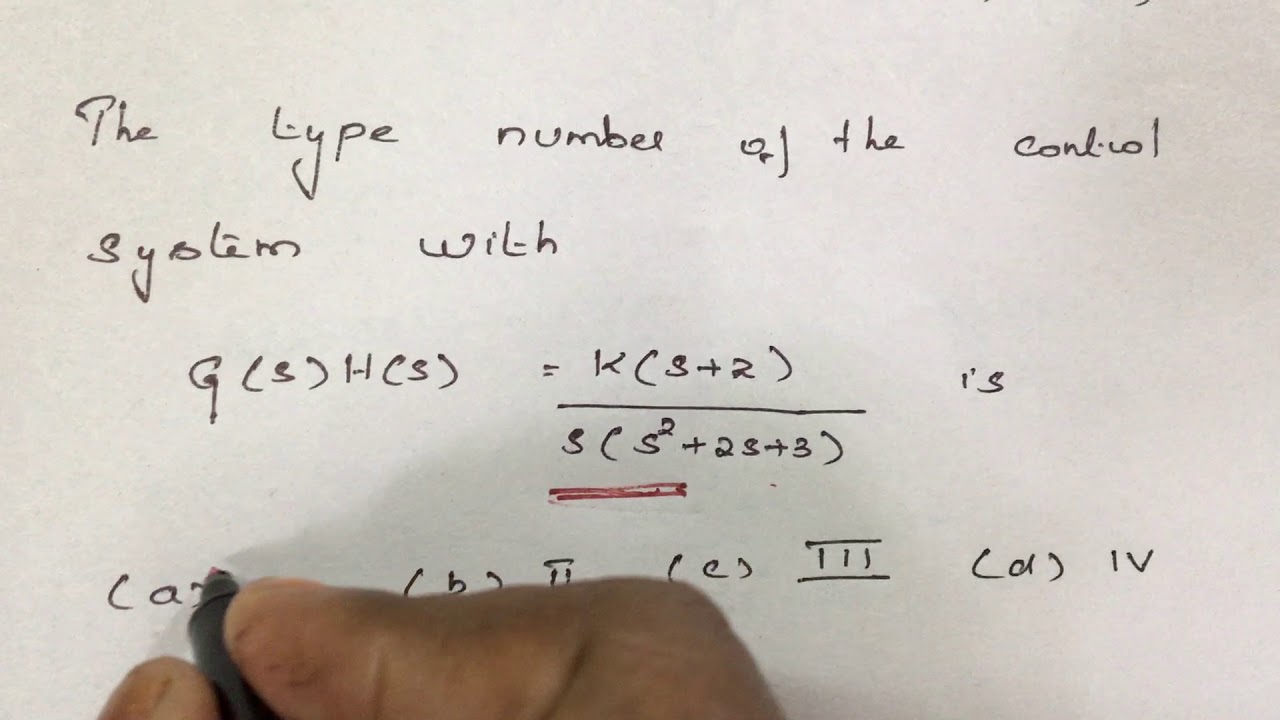 The type number of the control
system with
G(s)H(s) = K(s+2) is
s(s²+2s+3)
(a) (b) II (c) III (d) IV